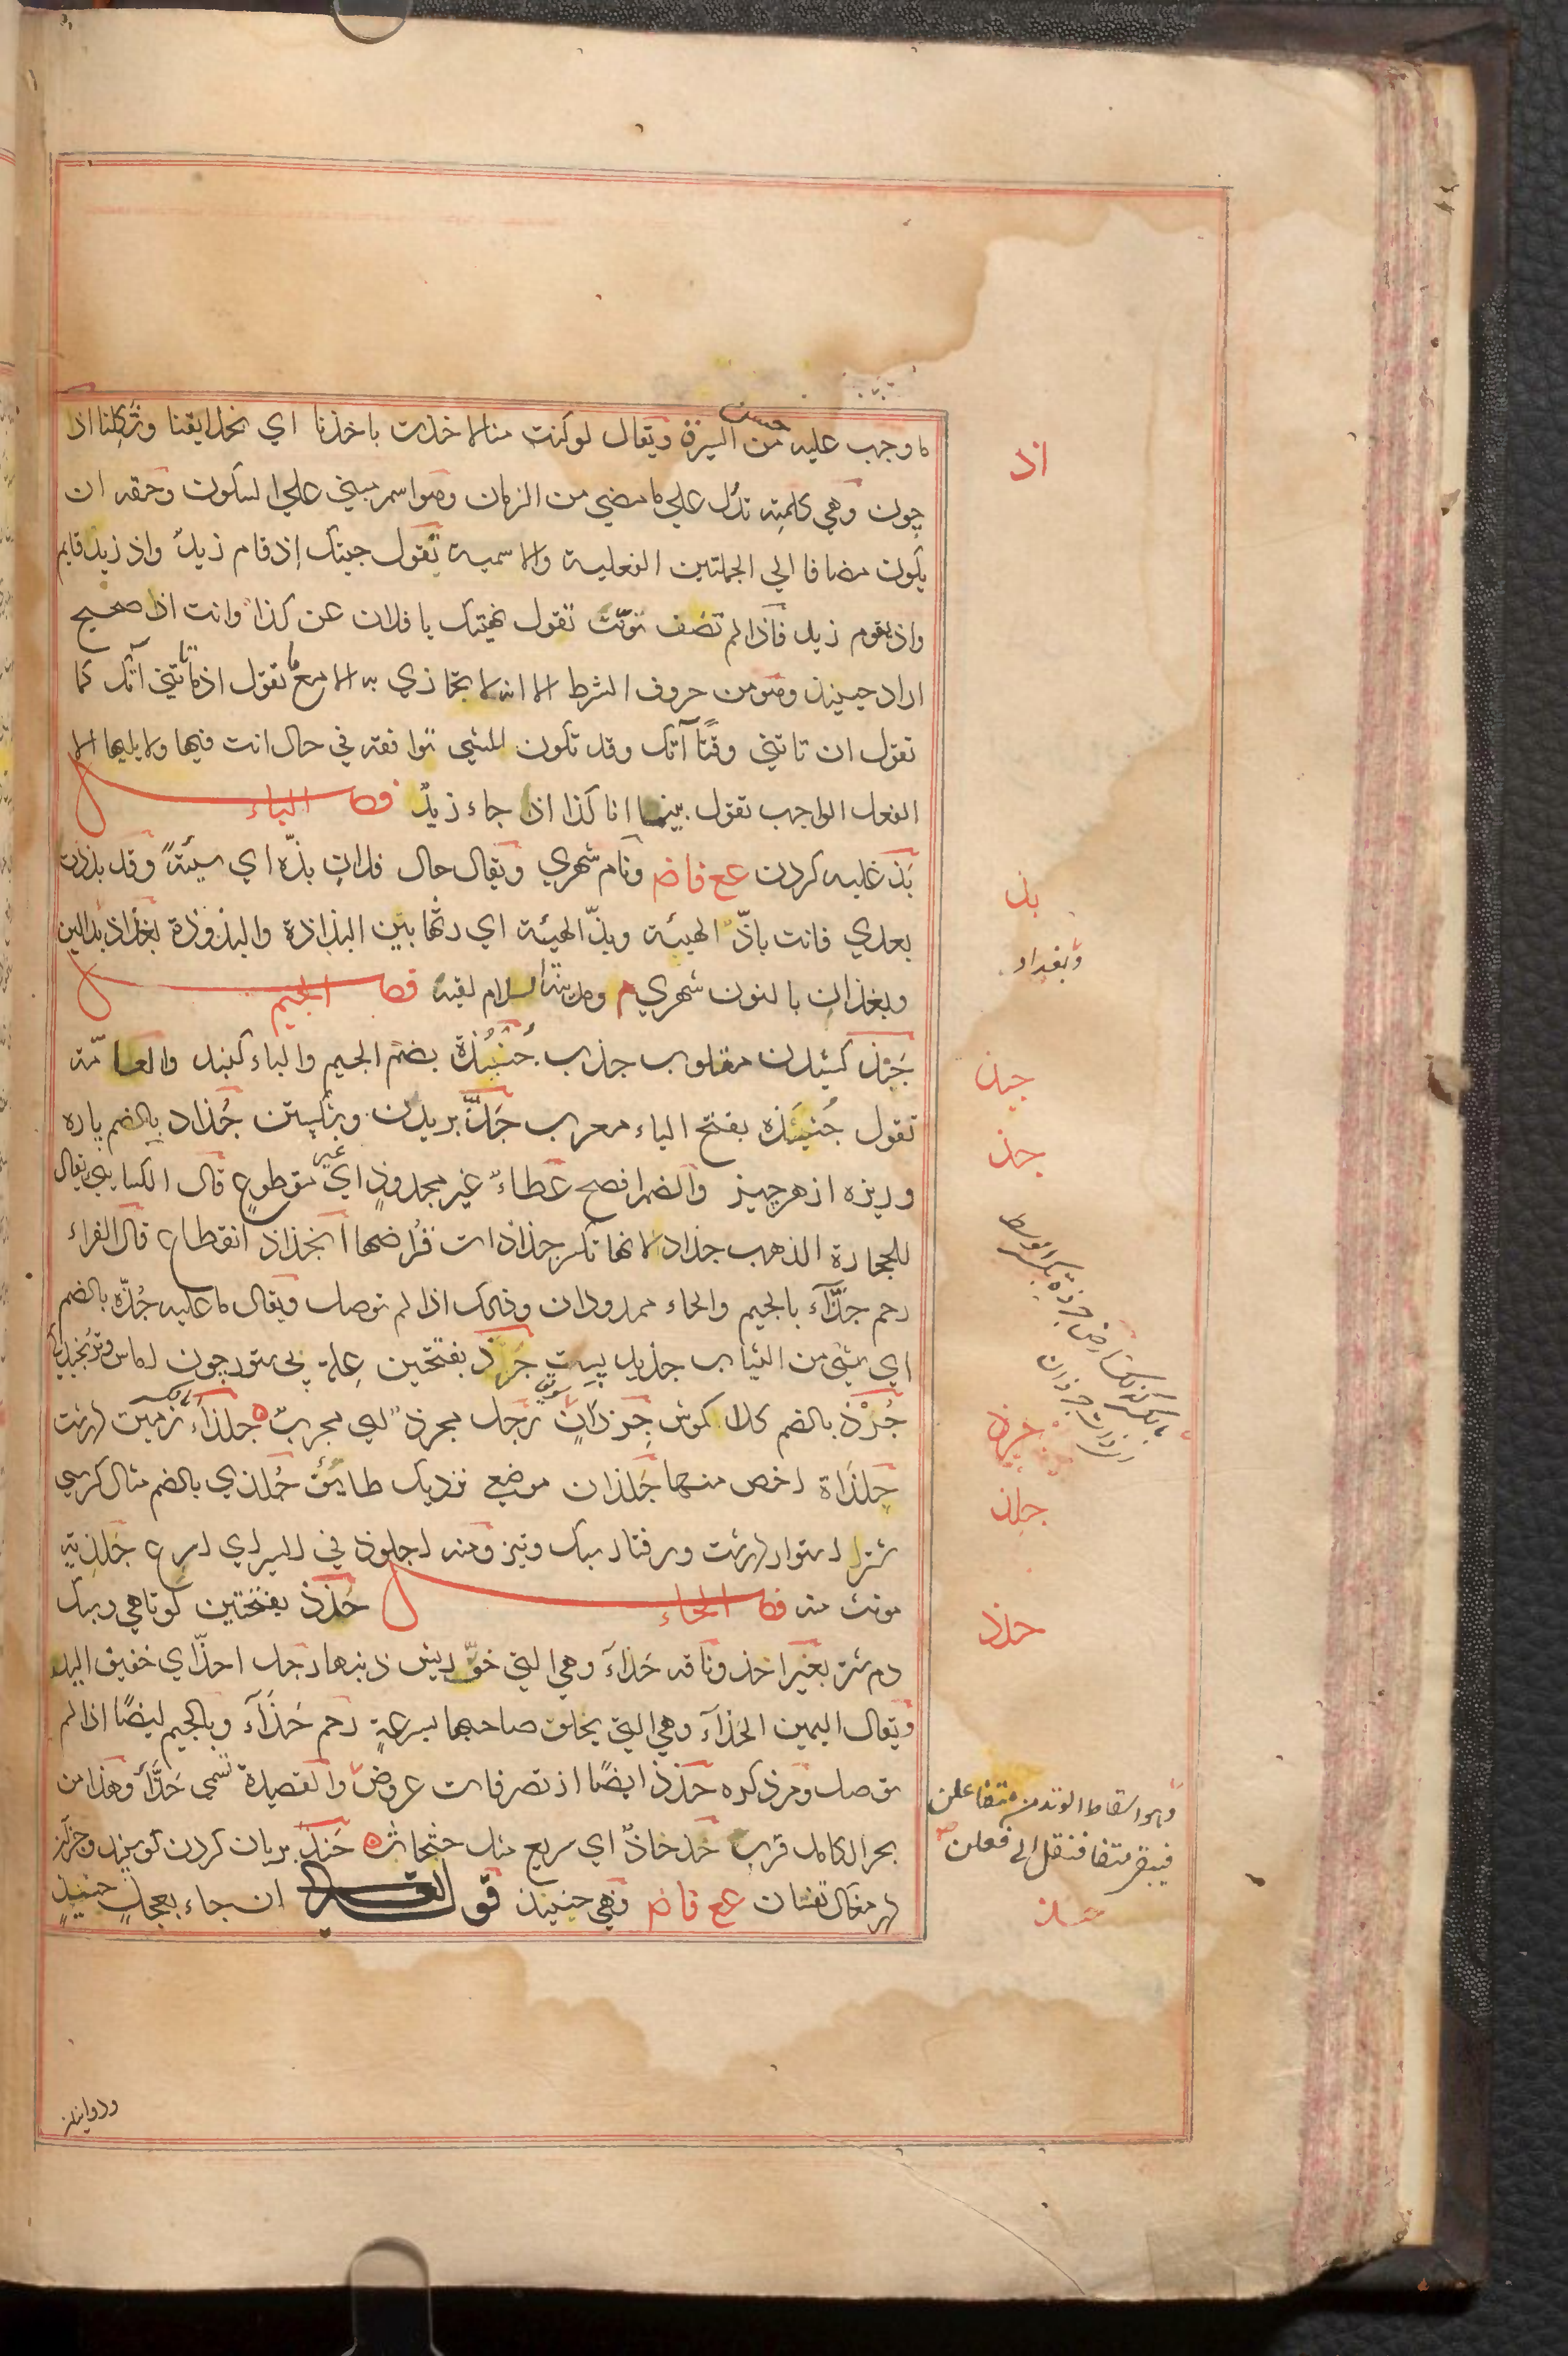 ما وجب عليه من حسن السيرة ويقال لو كنت منا لاخذت باخذنا اي بخلايقنا وشكلنا اذ
چون وهي كلمة تدل علي ما مضي من الزمان وهو اسم مبني علي السكون وحقه ان
يكون مضافا الي الجملتين الفعلية والاسمية تقول جيتك إذ قام زيد واذ زيد قايم
واذ يقوم زيد فاذا لم تضف نونت تقول نهيتك يا فلان عن كذا وانت اذ صحيح
اراد حينيذ وهو من حروف الشرط الا انه لا يجازي به الا مع ما تقول اذما تاتني آتك كما
تقول ان تاتني وقتًا آتك وقد تكون للشي توافقه في حال انت فيها ولا يليها الا
الفعل الواجب تقول بينما انا كذا اذ جاء زيدٌ فصل الباء
بَذ غلبه كردن عع فاض ونام شهري ويقال حال فلان بذّه اي سيئةً وقد بذذت
بعدي فانت باذّ الهيئة وبذّ الهيئة اي رثها بين البذاذة والبذوذة بغداذ بدالين
وبغذان بالنون شهري م ومدينة السلام لقبه فصل الجيم
جَبْذ كشيدن مقلوب جذب جُنْبُذة بضم الجيم والباء كنبد والعامّة
تقول جُنبَذه بفتح الباء معرب جَذّ بريدن وشكستن جُذاذ بالضم پاره
وريزه از هر چيز والضم افصح عَطاءً غير مجذوذٍ اي غير مقطوعٍ قال الكسايي يقال
للحجارة الذهب جذاذ لانها تكسر جذاذات قُراضها انجذاذ انقطاع قال الفراء
رحم جذّآء بالجيم والحاء ممدودان وذلك اذا لم توصل ويقال ما عليه جُذّه بالضم
اي شئ من الثياب جذيذ پست جَرَذ بفتحتين علة پي ستور چون
جُرَذ بالضم كلا كموش جرذانٌ رجل مجرذ اي مجرب جلذآء زمين درشت
جِلذَاة اخص منها جَلذان موضع نزديك طايف جُلذي بالضم مثال كرسي
شتر استوار درشت ورفتار سبك وتيز ومنه اجلوذ في السير اي اسرع جَلذية
مونث منه فصل الحاء حَذذ بفتحتين كوتاهي وسبك
دم شتر بعير احذ وناقه حَذآء وهي التي خفّ ريش ذنبها رجل احذّ اي خفيف اليد
ويقال اليمين الحَذآء وهي التي يحلف صاحبها بسرعةٍ رحم حَذّآء وبالجيم ايضًا اذا لم
توصل ومر ذكره حَذذ ايضًا از تصرفات عروض والقصيدة تسمي حَذّآء وهذا من
بحر الكامل قرب حَذحاذٌ اي سريع مثل حثحاث حَنذ بريان كردن كوسفند وجز آن
عع فاض وهي حنيذ قوله ان جاء بعجلٍ حنيذٍ
اذ
بذ
وبغداد
جبذ
جذ
جرذ
جلذ
حذذ
وهو اسقاط الوتد من متفاعلن
فيبقي متفا فنقل الي فعلن
حنذ